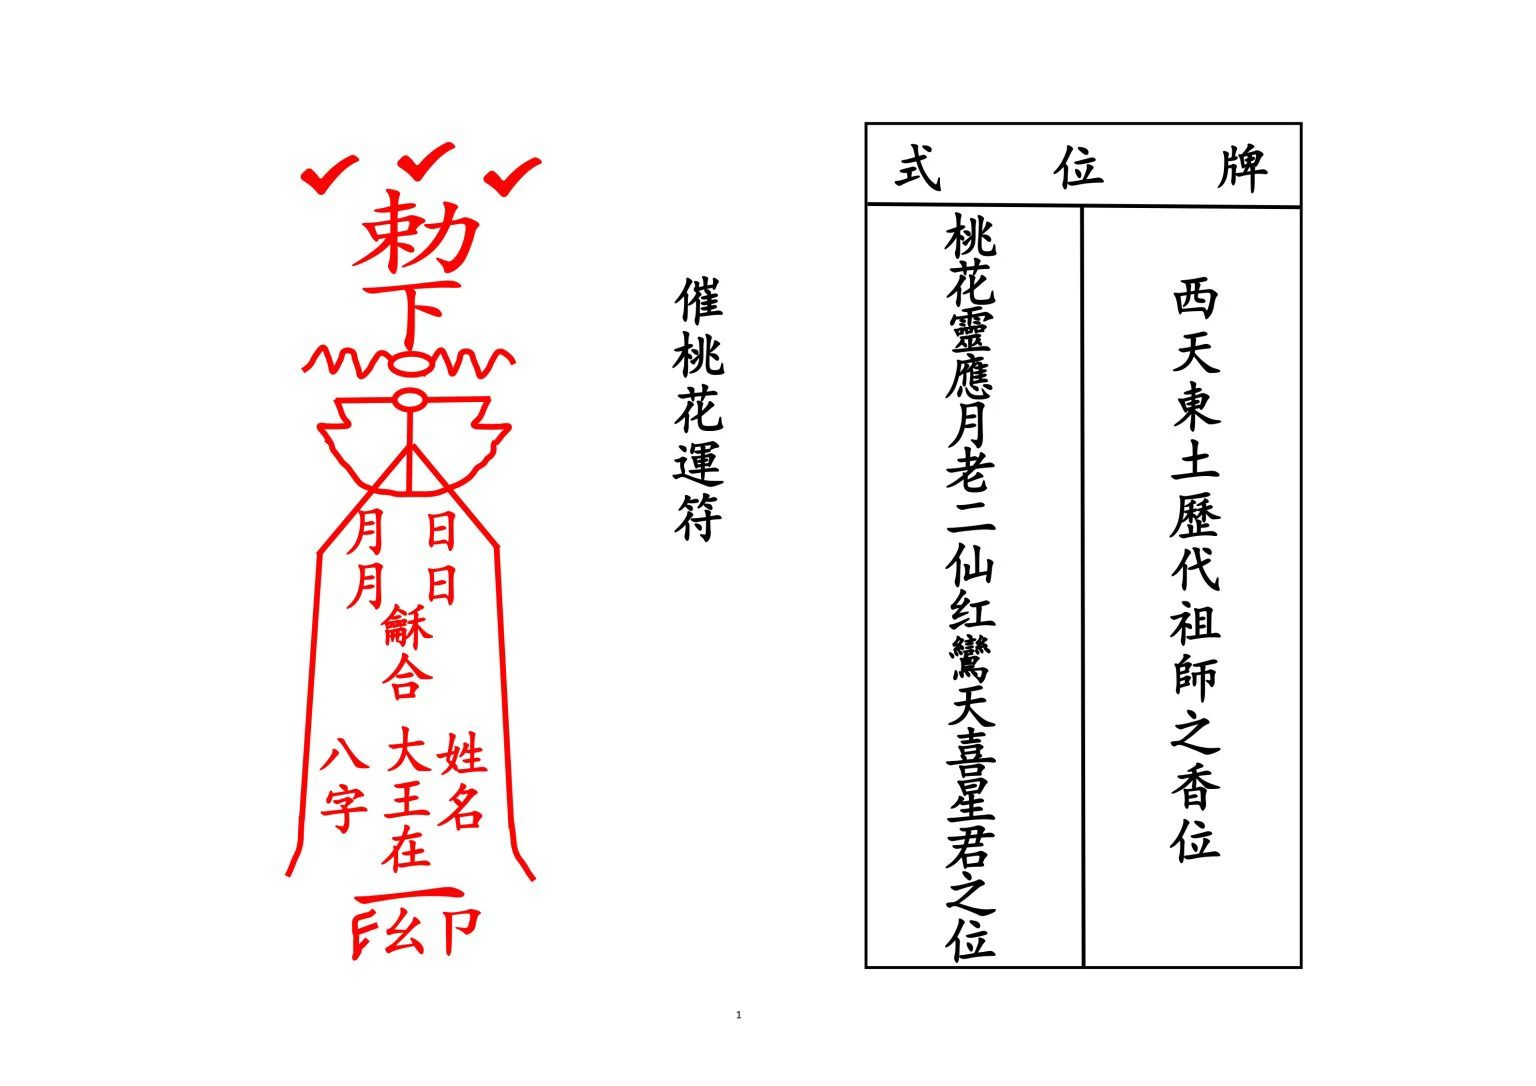 牌位式
西天東土歷代祖師之香位
桃花靈應月老二仙红鸞天喜星君之位
催桃花運符
勅
下
日月
日月
龢合
姓名
大王在
八字
1